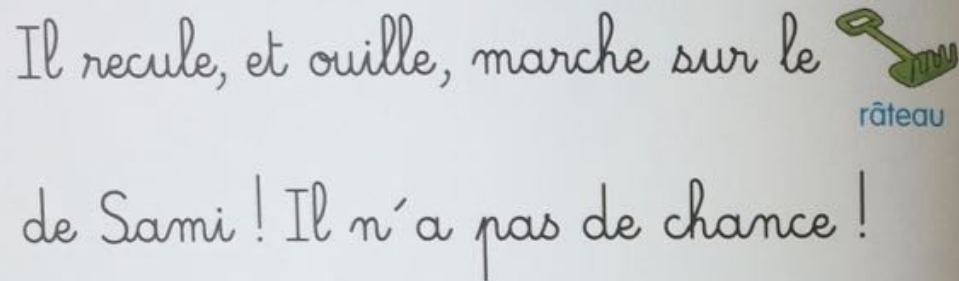 Il recule, et ouille, marche sur le
râteau
de Sami ! Il n'a pas de chance !